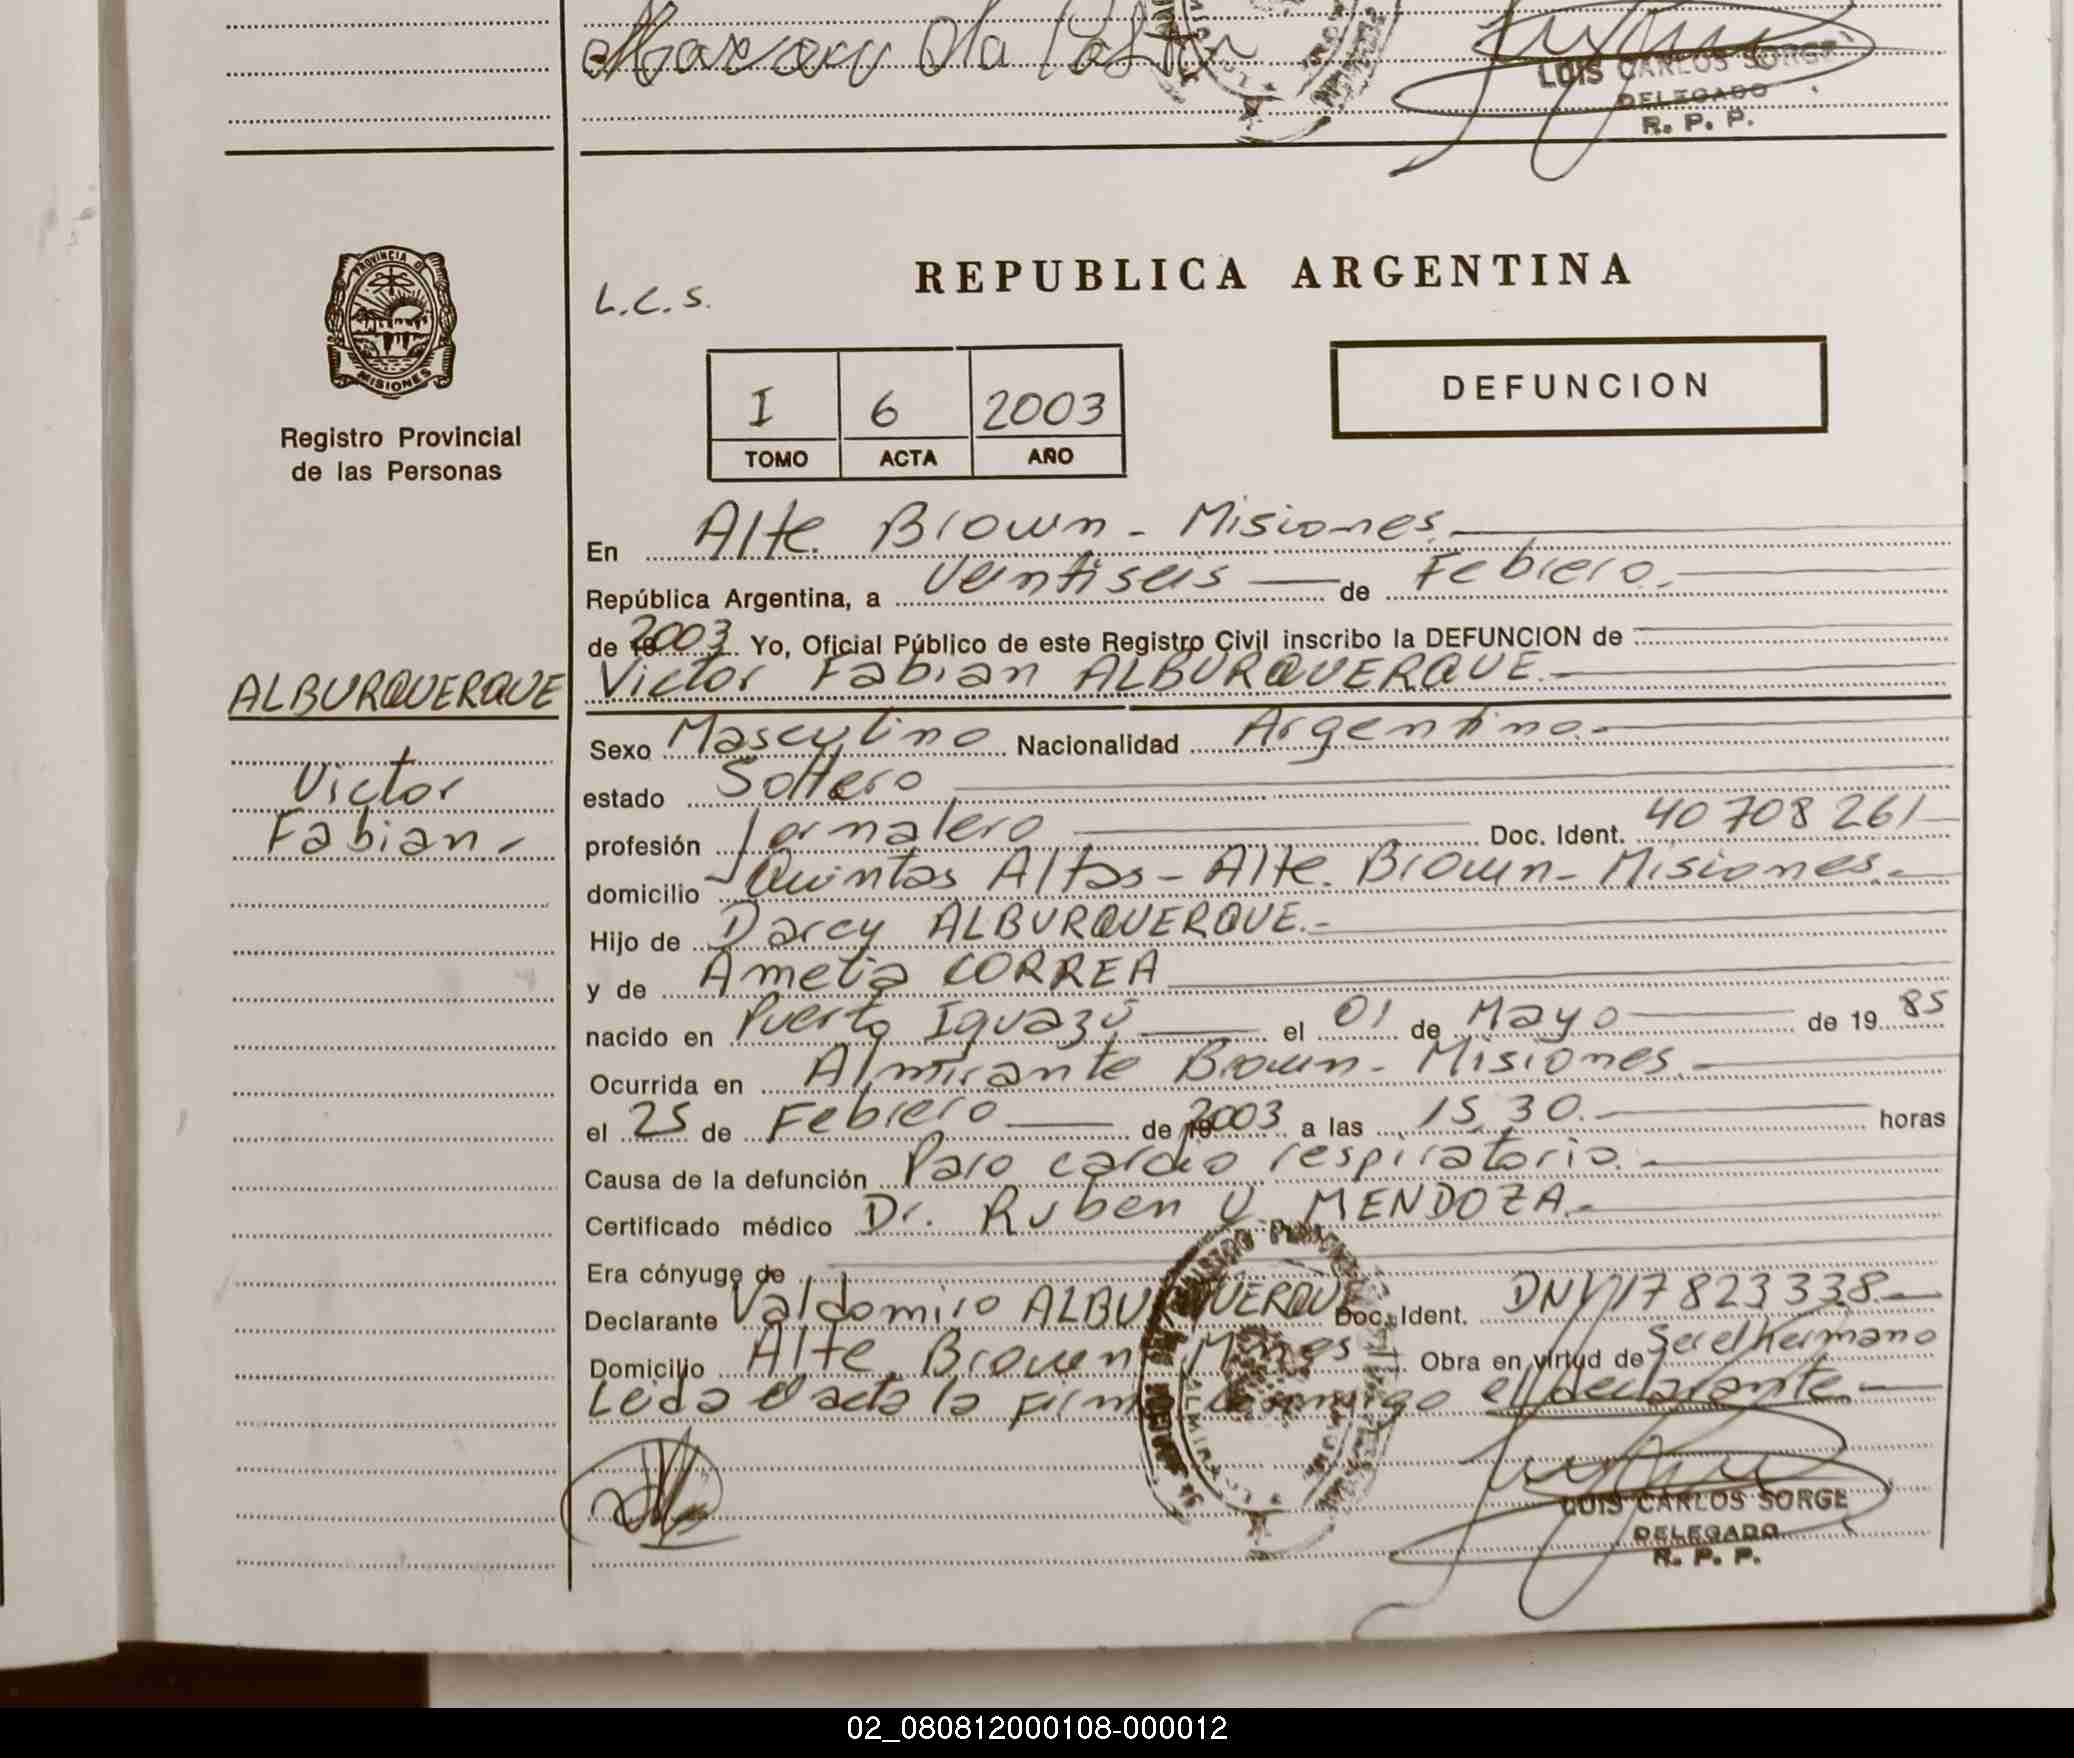 LUIS CARLOS SORGE
DELEGADO
R. P. P.
PROVINCIA DE
MISIONES
Registro Provincial
de las Personas
L.C.S.
REPUBLICA ARGENTINA
I 6 2003
TOMO ACTA AÑO
DEFUNCION
En Alte. Brown - Misiones.
República Argentina, a veintiseis de Febrero.
de 2003 Yo, Oficial Público de este Registro Civil inscribo la DEFUNCION de
Victor Fabian ALBURQUERQUE.
ALBURQUERQUE
Victor
Fabian.
Sexo Masculino Nacionalidad Argentino.
estado Soltero
profesión Jornalero Doc. Ident. 40708261
domicilio Quintas Altas - Alte. Brown - Misiones.
Hijo de Darcy ALBURQUERQUE.
y de Amelia CORREA
nacido en Puerto Iguazú el 01 de Mayo de 1985
Ocurrida en Almirante Brown - Misiones.
el 25 de Febrero de 2003 a las 15,30. horas
Causa de la defunción Paro cardio respiratorio.
Certificado médico Dr. Ruben V. MENDOZA.
Era cónyuge de
Declarante Valdomiro ALBURQUERQUE Doc. Ident. DNI 17823338.
Domicilio Alte. Brown Mnes Obra en virtud de Ser el hermano
Leida el acta la firma conmigo el declarante.
LUIS CARLOS SORGE
DELEGADO
R. P. P.
02_080812000108-000012